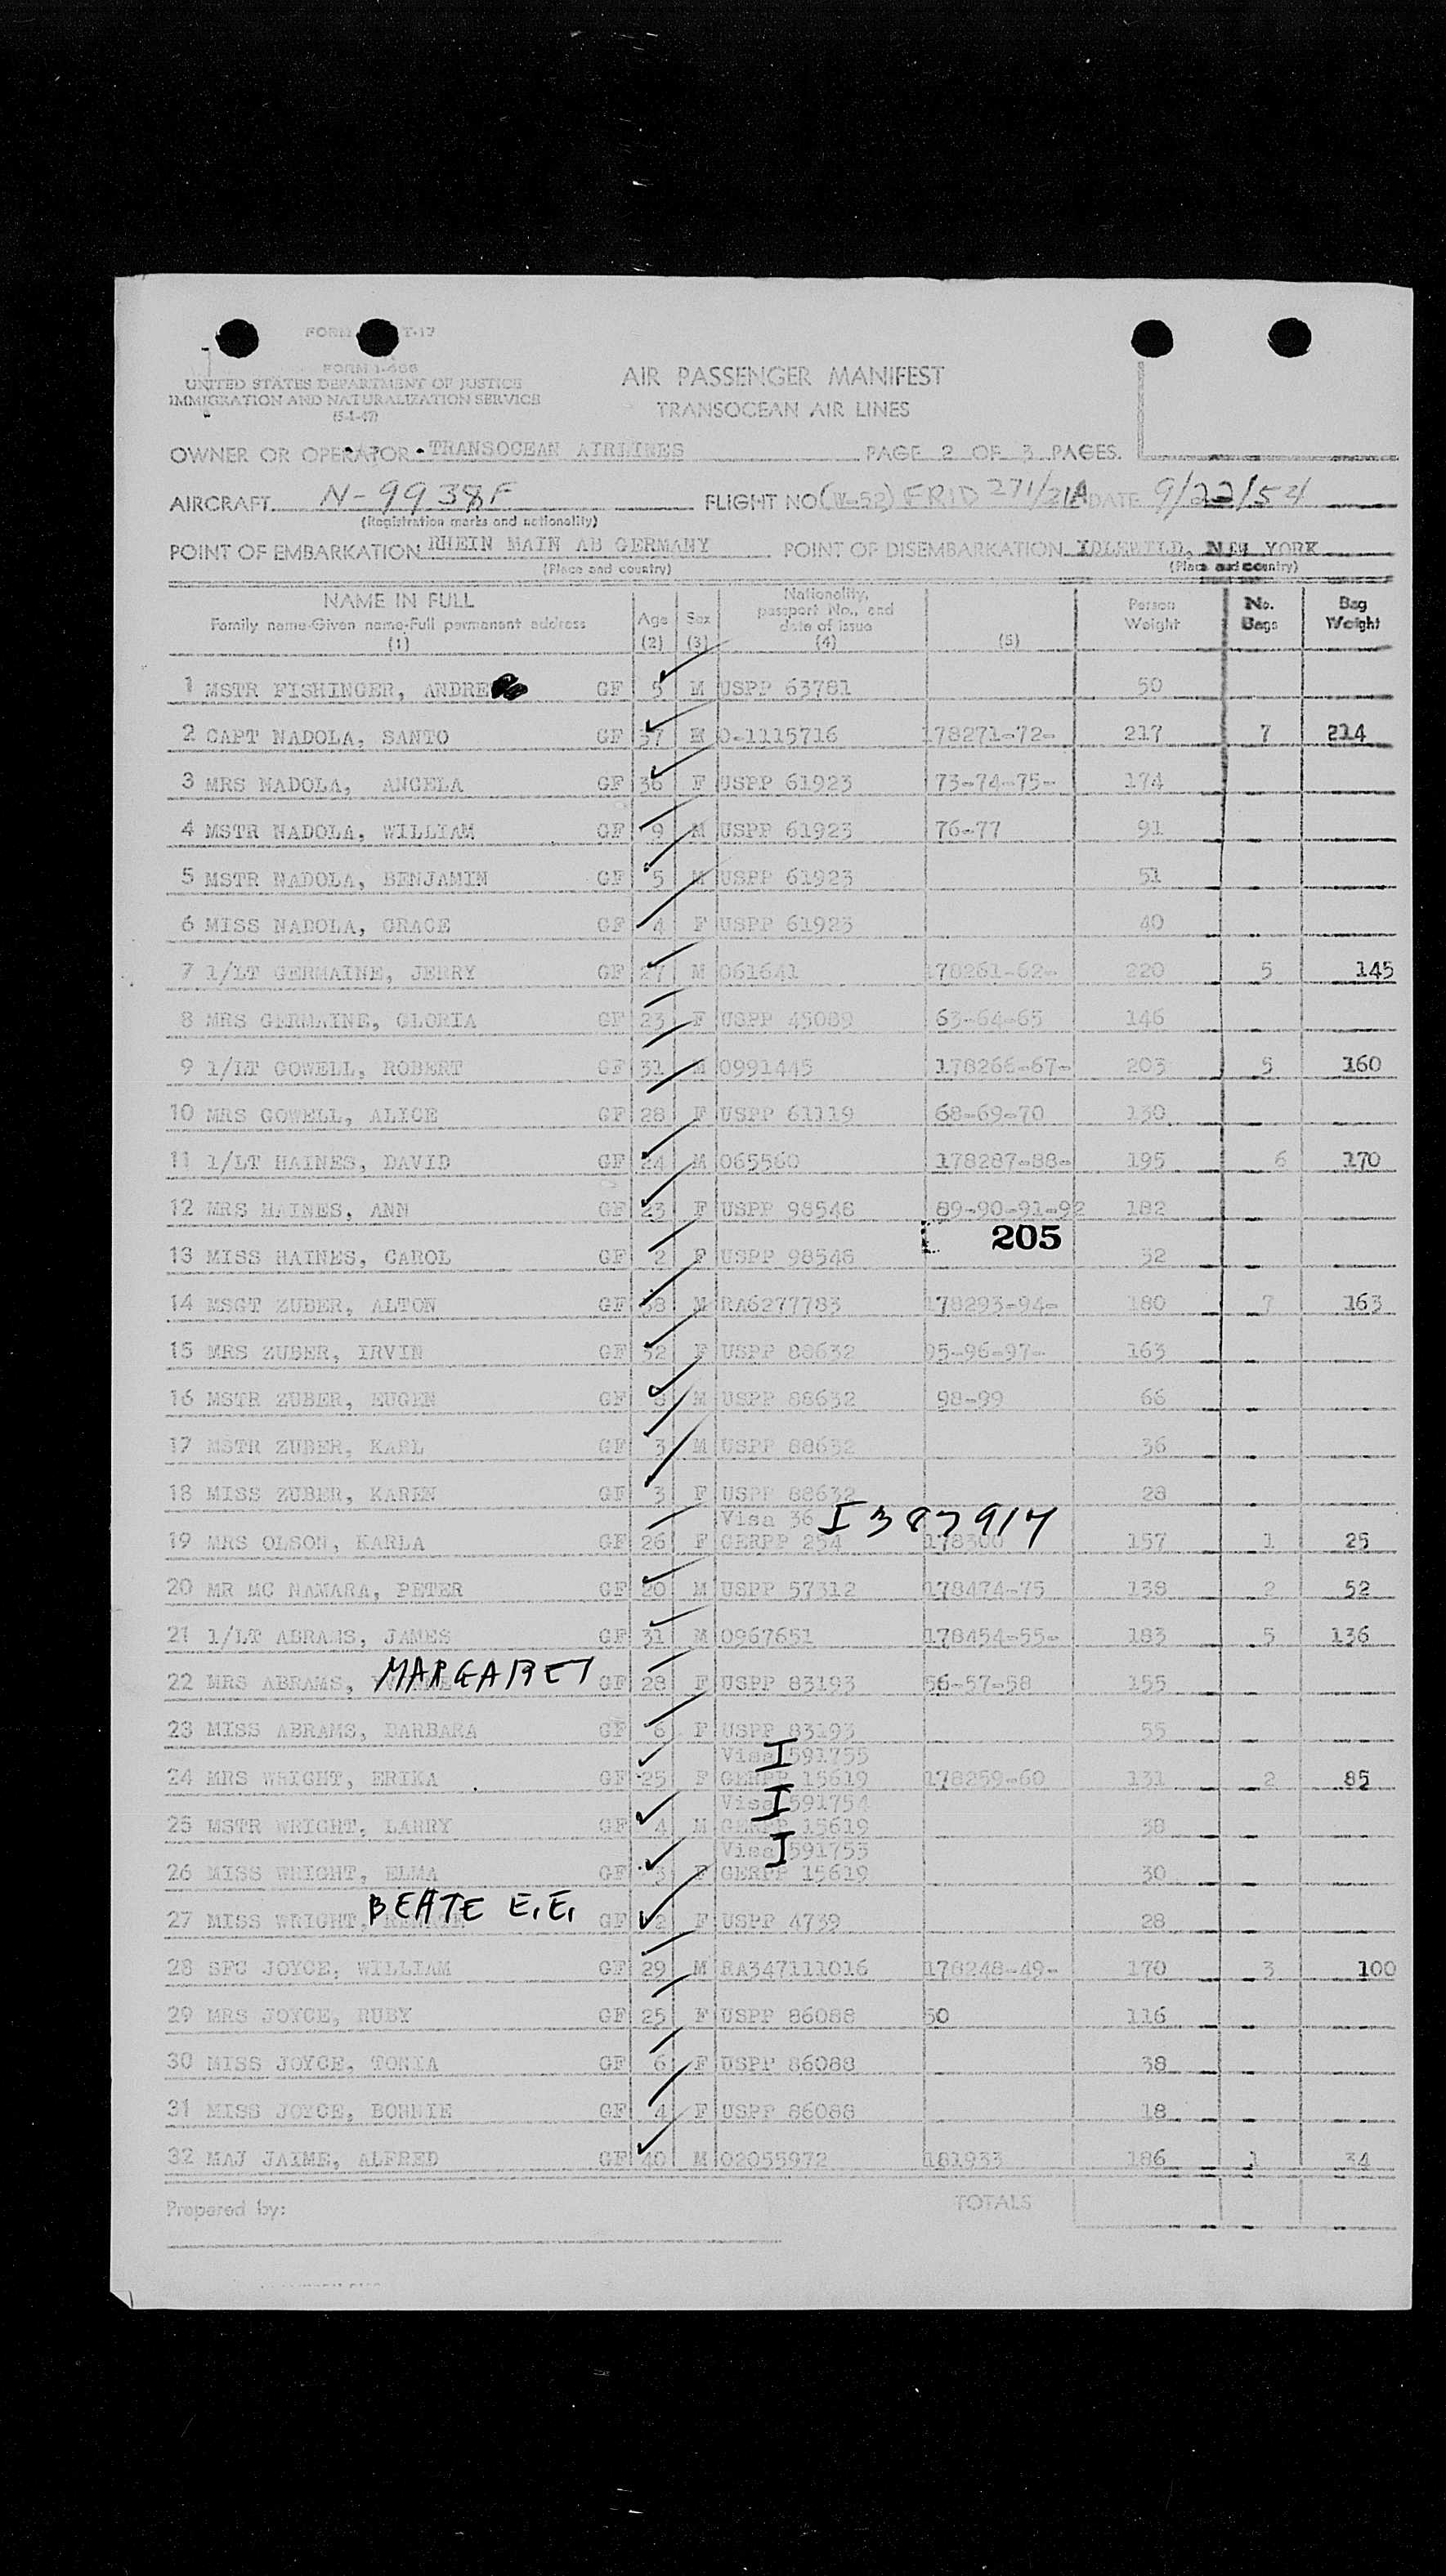 FORM T-17
FORM I-466
UNITED STATES DEPARTMENT OF JUSTICE
IMMIGRATION AND NATURALIZATION SERVICE
(5-1-47)
AIR PASSENGER MANIFEST
TRANSOCEAN AIR LINES
OWNER OR OPERATOR TRANSOCEAN AIRLINES PAGE 2 OF 3 PAGES.
AIRCRAFT N-9938F FLIGHT NO (W-52) FRID 271/21A DATE 9/22/54
(Registration marks and nationality)
POINT OF EMBARKATION RHEIN MAIN AB GERMANY POINT OF DISEMBARKATION IDLEWILD, NEW YORK
(Place and country) (Place and country)
NAME IN FULL Family name-Given name-Full permanent address (1) Age (2) Sex (3) Nationality, passport No., and date of issue (4) (5) Person Weight No. Bags Bag Weight
1 MSTR FISHINGER, ANDRE GF 5 M USPP 63781 50
2 CAPT NADOLA, SANTO GF 37 M O-1115716 178271-72- 217 7 214
3 MRS NADOLA, ANGELA GF 36 F USPP 61923 73-74-75- 174
4 MSTR NADOLA, WILLIAM GF 9 M USPP 61923 76-77 91
5 MSTR NADOLA, BENJAMIN GF 5 M USPP 61923 51
6 MISS NADOLA, GRACE GF 4 F USPP 61923 40
7 1/LT GERMAINE, JERRY GF 27 M 061641 178261-62- 220 5 145
8 MRS GERMAINE, GLORIA GF 23 F USPP 45089 63-64-65 146
9 1/LT GOWELL, ROBERT GF 31 M 0991445 178266-67- 203 5 160
10 MRS GOWELL, ALICE GF 28 F USPP 61119 68-69-70 130
11 1/LT HAINES, DAVID GF 24 M 065560 178287-88- 195 6 170
12 MRS HAINES, ANN GF 23 F USPP 98548 89-90-91-92 182
205
13 MISS HAINES, CAROL GF 2 F USPP 98548 32
14 MSGT ZUBER, ALTON GF 38 M RA6277783 178293-94- 180 7 163
15 MRS ZUBER, IRVIN GF 32 F USPP 88632 95-96-97- 163
16 MSTR ZUBER, EUGEN GF 8 M USPP 88632 98-99 66
17 MSTR ZUBER, KARL GF 3 M USPP 88632 36
18 MISS ZUBER, KAREN GF 3 F USPP 88632 28
Visa 36 I387914
19 MRS OLSON, KARLA GF 26 F GERPP 254 178300 157 1 25
20 MR MC NAMARA, PETER GF 20 M USPP 57312 178474-75 138 2 52
21 1/LT ABRAMS, JAMES GF 31 M 0967651 178454-55- 183 5 136
22 MRS ABRAMS, MARGARET GF 28 F USPP 83193 56-57-58 155
23 MISS ABRAMS, BARBARA GF 6 F USPP 83193 55
Visa I 591755
24 MRS WRIGHT, ERIKA GF 25 F GERPP 15619 178259-60 131 2 85
Visa I 591754
25 MSTR WRIGHT, LARRY GF 4 M GERPP 15619 38
Visa I 591753
26 MISS WRIGHT, ELMA GF 3 F GERPP 15619 30
27 MISS WRIGHT, BEATE E.E. GF 2 F USPP 4739 28
28 SFC JOYCE, WILLIAM GF 29 M RA347111016 178248-49- 170 3 100
29 MRS JOYCE, RUBY GF 25 F USPP 86088 50 116
30 MISS JOYCE, TONIA GF 6 F USPP 86088 38
31 MISS JOYCE, BONNIE GF 4 F USPP 86088 18
32 MAJ JAIME, ALFRED GF 40 M 02055972 181933 186 1 34
Prepared by: TOTALS